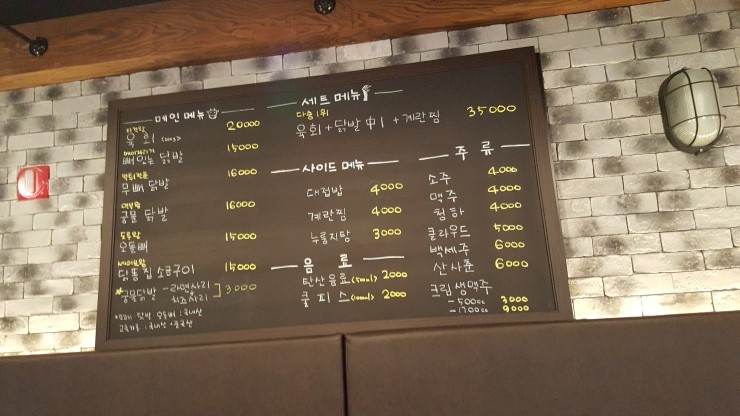 메인 메뉴
육회 20000
뼈있는 닭발 15000
무뼈 닭발 16000
국물 닭발 16000
오돌뼈 15000
닭똥집 소금구이 15000
*국물닭발 - 라면사리
치즈사리 3000
세트 메뉴
육회+닭발 中1 +계란찜 35000
사이드 메뉴
대접밥 4000
계란찜 4000
누룽지탕 3000
음료
탄산음료 2000
쿨피스 2000
주류
소주 4000
맥주 4000
청하 4000
클라우드 5000
백세주 6000
산사춘 6000
크림생맥주
-500cc 3000
-1700cc 9000